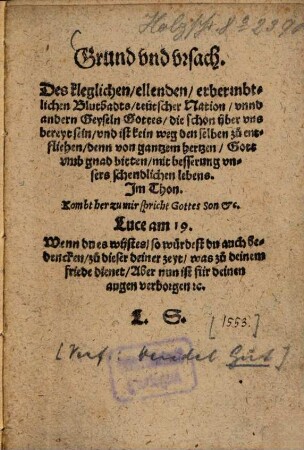 Holzsch. 8° 2390
Grund vnd vrsach.
Des kleglichen / ellenden / erbermbt-
lichen Blutbadts / teütscher Nation / vnnd
andern Geyseln Gottes / die schon über vns
bereyt sein / vnd ist kein weg den selben zů ent-
fliehen / denn von gantzem hertzen / Gott
vmb gnad bitten / mit besserung vn-
sers schendlichen lebens.
Im Thon.
Kombt her zu mir spricht Gottes Son &c.
Luce am 19.
Wenn du es wüstest / so würdest du auch be-
dencken / zů dieser deiner zeyt / was zů deinem
friede dienet / Aber nun ist für deinen
augen verborgen ꝛc.
L. S.
[1553.]
[Verf: